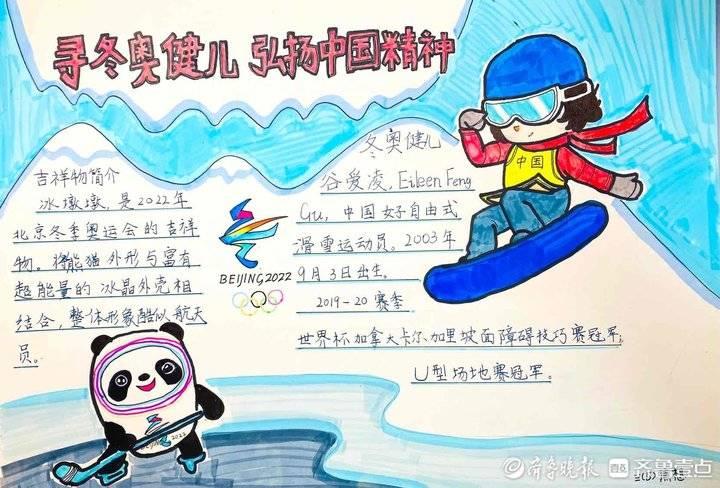 寻冬奥健儿 弘扬中国精神
吉祥物简介
冰墩墩,是2022年
北京冬季奥运会的吉祥
物。将熊猫外形与富有
超能量的冰晶外壳相
结合,整体形象酷似航天
员。
BEIJING 2022
冬奥健儿
谷爱凌,Eileen Feng
Gu,中国女子自由式
滑雪运动员。2003年
9月3日出生。
2019-20赛季
世界杯加拿大卡尔加里坡面障碍技巧赛冠军;
U型场地赛冠军。
中国
BEIJING 2022
齐鲁晚报 齐鲁壹点